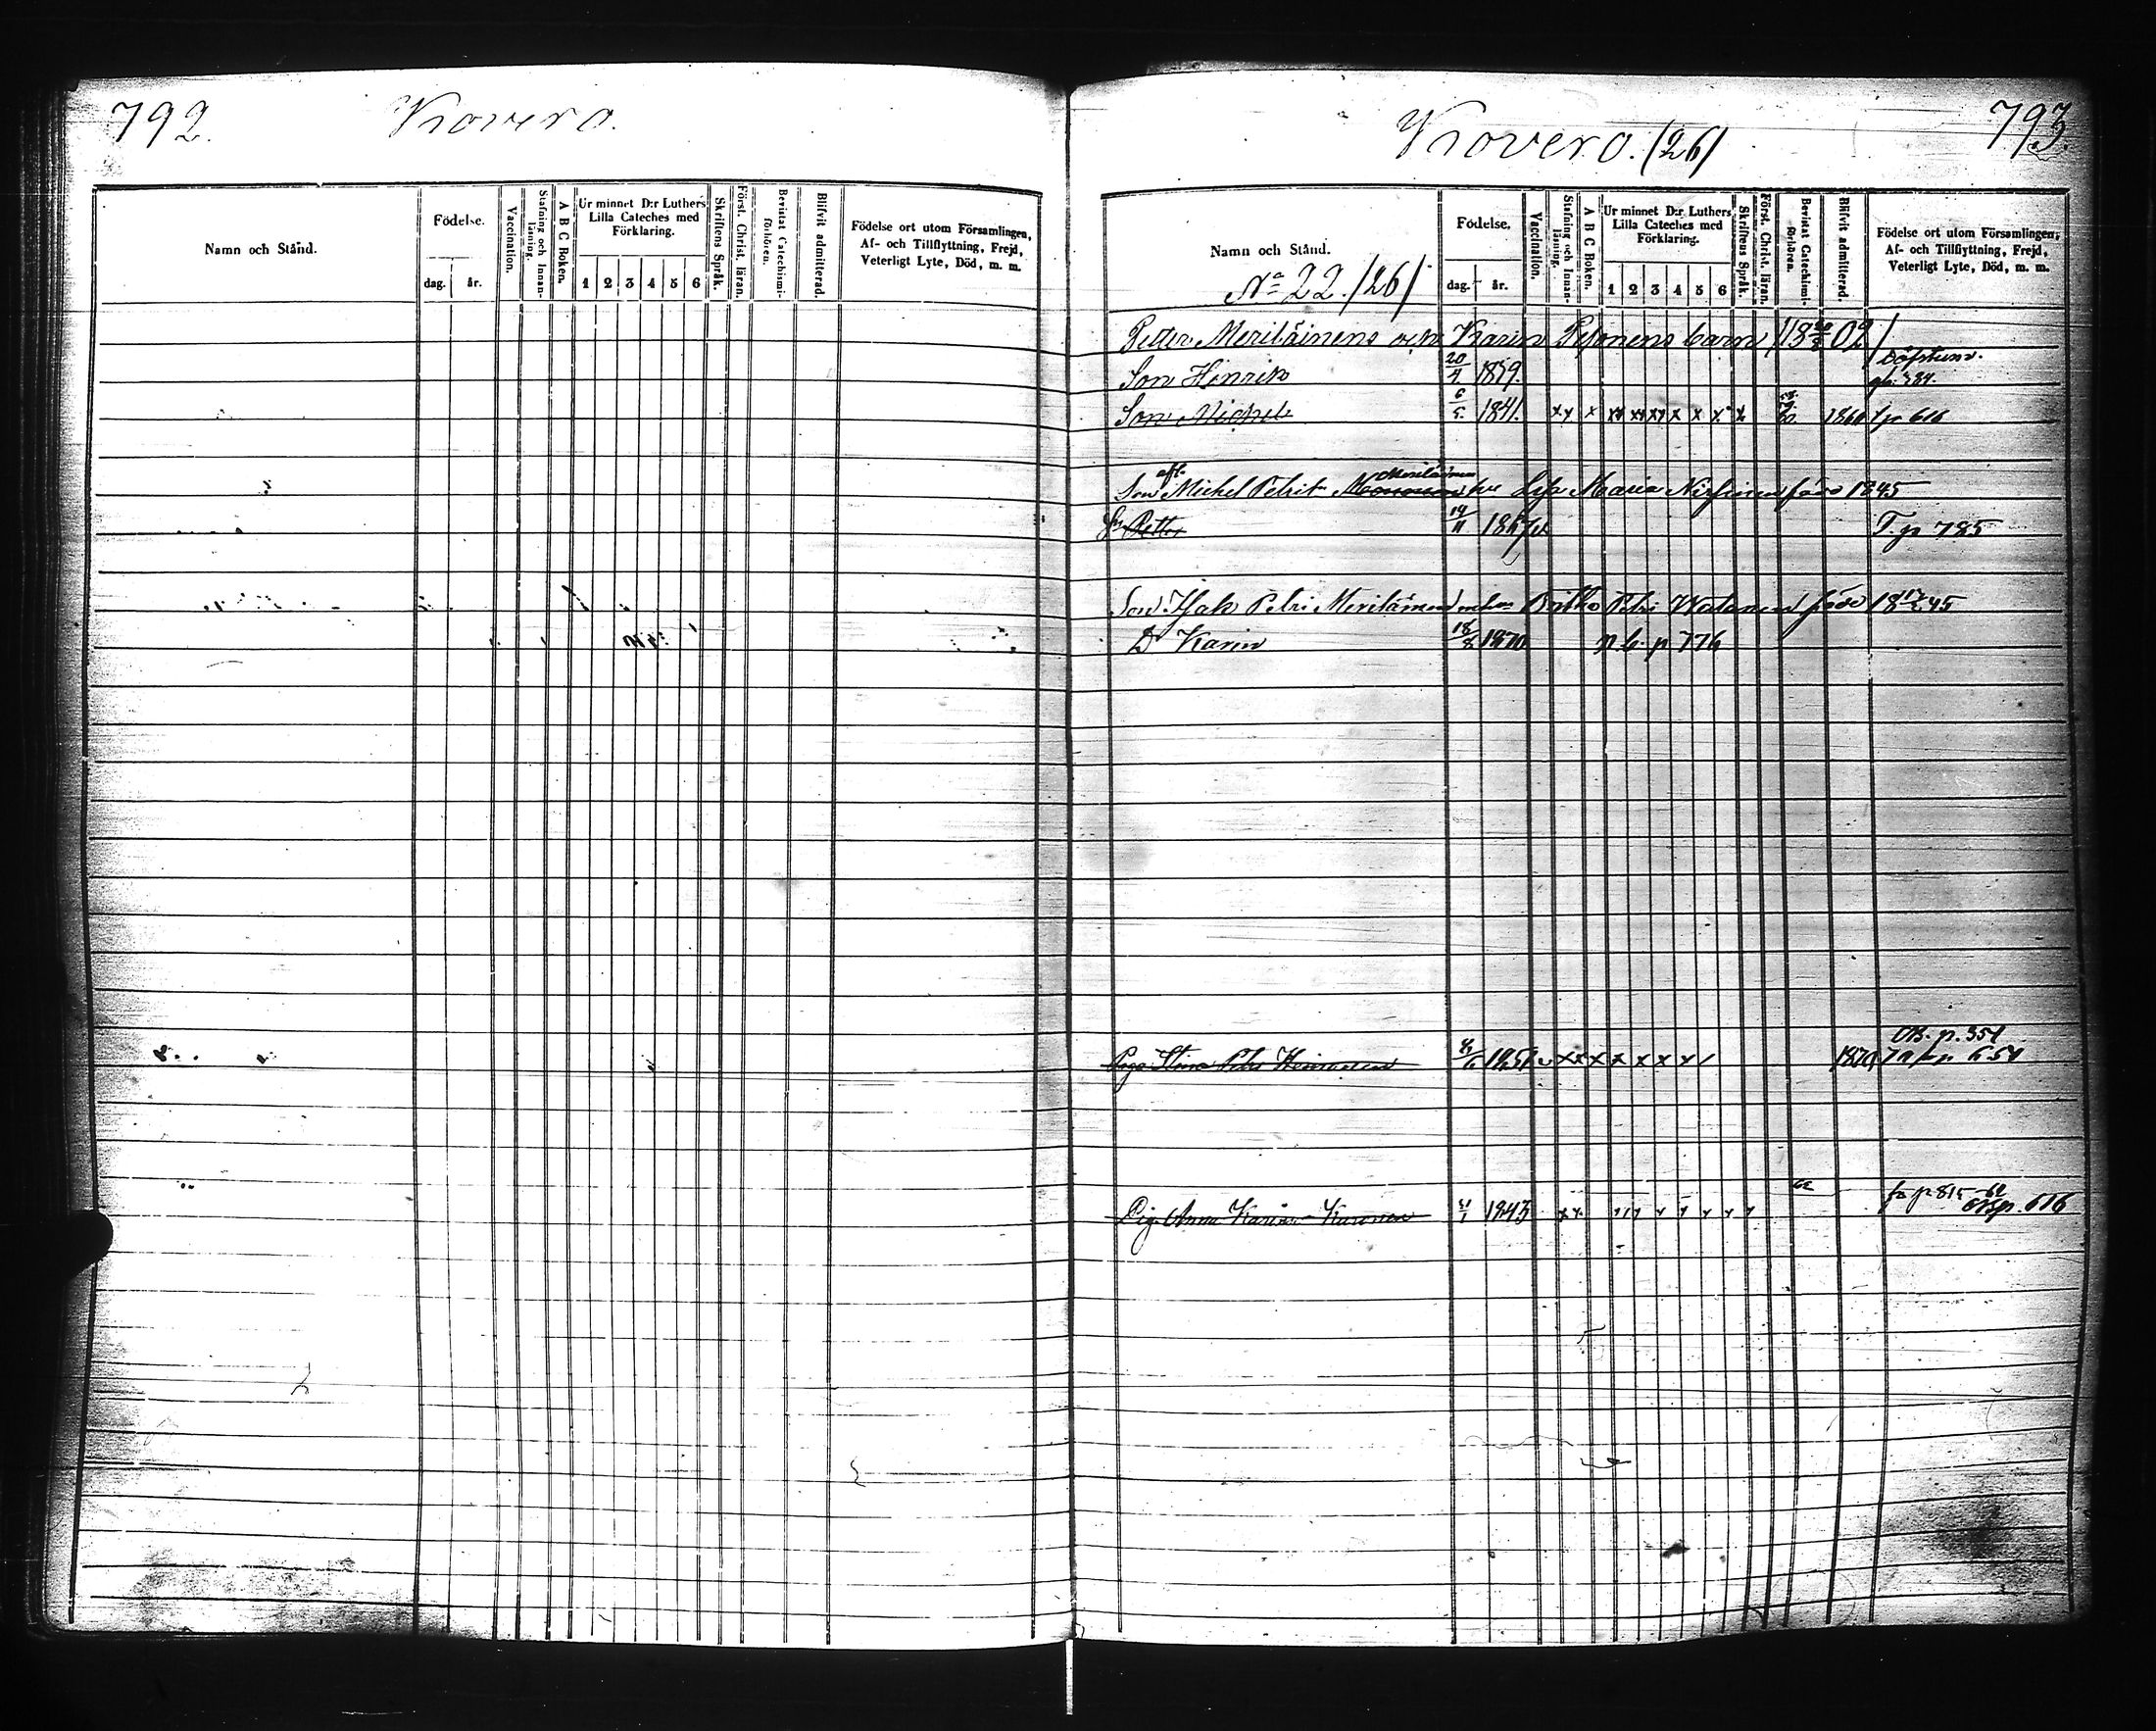 792.
Kovero.
Namn och Stånd.
Födelse.
dag.
år.
Vaccination.
Stafning och Innanläsning.
A B C Boken.
Ur minnet D:r Luthers
Lilla Cateches med
Förklaring.
1 2 3 4 5 6
Skriftens Språk.
Först. Christ. läran.
Bevistat Catechismiförhören.
Blifvit admitterad.
Födelse ort utom Församlingen,
Af- och Tillflyttning, Frejd,
Veterligt Lyte, Död, m. m.
Kovero. (26)
793.
Namn och Stånd.
No 22. /26/
Födelse.
dag.
år.
Vaccination.
Stafning och Innanläsning.
A B C Boken.
Ur minnet D:r Luthers
Lilla Cateches med
Förklaring.
1 2 3 4 5 6
Skriftens Språk.
Först. Christ. läran.
Bevistat Catechismiförhören.
Blifvit admitterad.
Födelse ort utom Församlingen,
Af- och Tillflyttning, Frejd,
Veterligt Lyte, Död, m. m.
Petter Meriläinens och Karin Pesonens barn 02
Son Hinrik 20/4 1859. 784.
Son Michel 6/5 1841. x x x x x x x 1860 p 616
Son Michel Petri Meriläinen Lisa Maria född 1845
Petter 14/11 1867 T. p 785
Son Isak Petri Meriläinen Petri Watanen född 45
D Karin 18/8 1870 p 776
OB. p. 354
Stina Petri 1851 x x x x x x x 654
p 815
Pig. Anna Karin 1843 x x p. 616